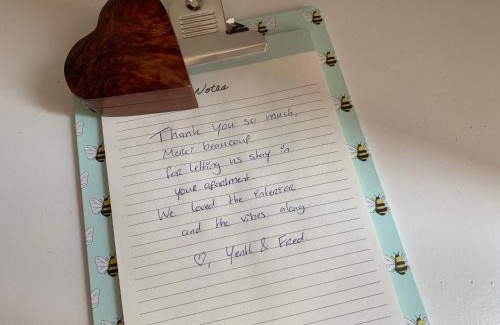 Notes
Thank you so much,
Merci beaucoup
for letting us stay in
your apartment.
We loved the interior
and the vibes along
♡, & Fred.